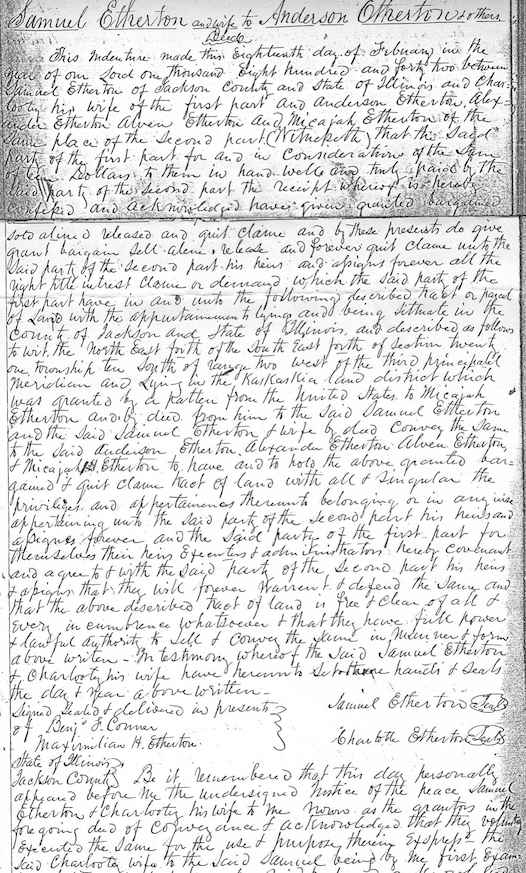 Samuel Etherton and wife to Anderson Otherton & others
Deed
This Indenture made this Eighteenth day of Febuary in the
year of our Lord one thousand Eight hundred and forty two between
Samuel Etherton of Jackson County and State of Illinois and Char-
looty his wife of the first part and Anderson Etherton, Alex-
ander Etherton Alven Etherton and Micajah Etherton of the
Same place of the Second part, Witnesseth, that the Said
party of the first part for and in Consideration of the Sum
of Dollars to them in hand well and truly paid by the
Said party of the Second part the receipt whereof is hereby
and acknowledged have given granted bargained
sold alined released and quit Claime and by these presents do give
grant bargain Sell alene release and forever quit claime unto the
Said party of the second part his heirs and assigns forever all the
right title intrest Claime or demand which the Said party of the
first part have in and unto the following described tract or parcel
of Land with the appurtainaments lying and being Situate in the
County of Jackson and State of Illinois, and described as follows
to wit, the North East forth of the South East forth of Section twenty
one township ten South of range two west of the third principal
Meridian and Lying in the Kaskaskia land district which
was granted by a patten from the United States to Micajah
Etherton and by died from him to the Said Samuel Etherton
and the Said Samuel Etherton & wife by died Convey the Same
to the Said Anderson Etherton, Alexander Etherton Alven Etherton,
& Micajah Etherton to have and to hold the above granted bar-
gained & quit claime tract of land with all & Singular the
priviliges and appertainences thereunto belonging or in any wise
appertaining unto the Said party of the Second part his heirs and
assignes forever and the Said party of the first part for
themselves their heirs Executors & administrators hereby Covenant
and agree to & with the Said party of the Second part his heirs
& assigns that they will forever Warrent & defend the Same and
that the above described tract of land is free & Clear of all &
Every in cumbrence whatsoever & that they have full power
& lawful authority to Sell & Convey the Same in Manner & form
above writen - In testimony whereof the Said Samuel Etherton
& Charlooty his wife have hereunto Set there hands & Seals
the day & year above written -
Signed Sealed & delivered in present
of Benj F. Conner
Maximilian H. Etherton.
Samuel Etherton Seal
Charlotte Etherton Seal
State of Illinois
Jackson County Be it remembered that this day personally
appeared before me the undersigned Justice of the peace Samuel
Etherton & Charlooty his wife to me known as the grantors in the
foregoing died of Conveyance & acknowledged that they voluntary
Executed the Same for the use & purpose therein Expresst the
Said Charlooty wife to the Said Samuel being by me first Exam-